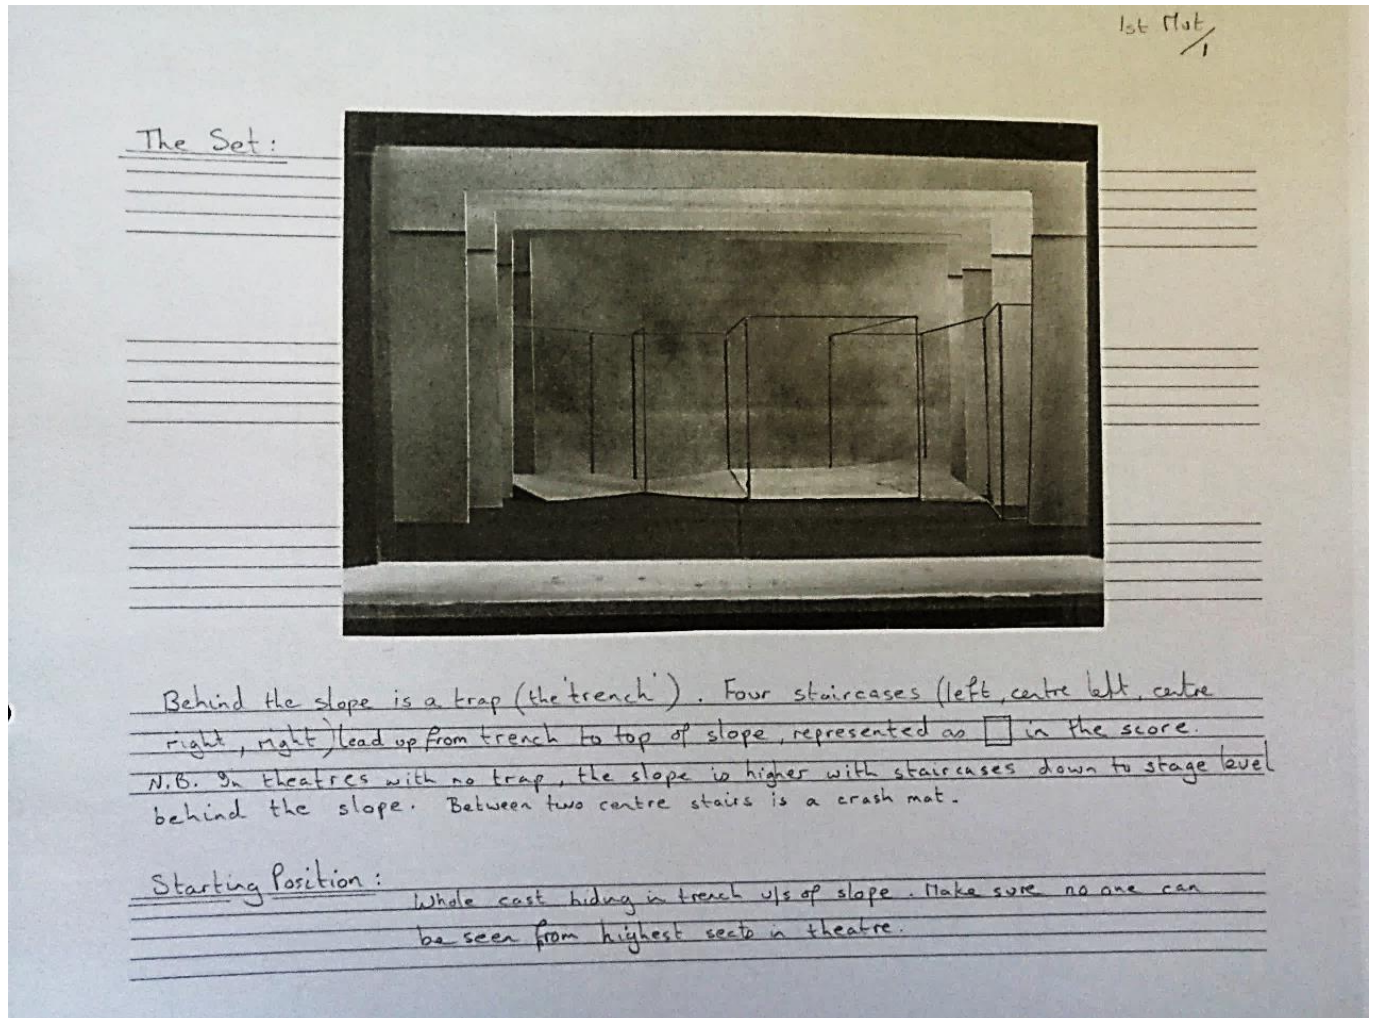 1st Mvt
/1
The Set:
Behind the slope is a trap (the 'trench'). Four staircases (left, centre left, centre
right, right) lead up from trench to top of slope, represented as □ in the score.
N.B. In theatres with no trap, the slope is higher with staircases down to stage level
behind the slope. Between two centre stairs is a crash mat.
Starting Position:
Whole cast hiding in trench u/s of slope. Make sure no one can
be seen from highest seats in theatre.